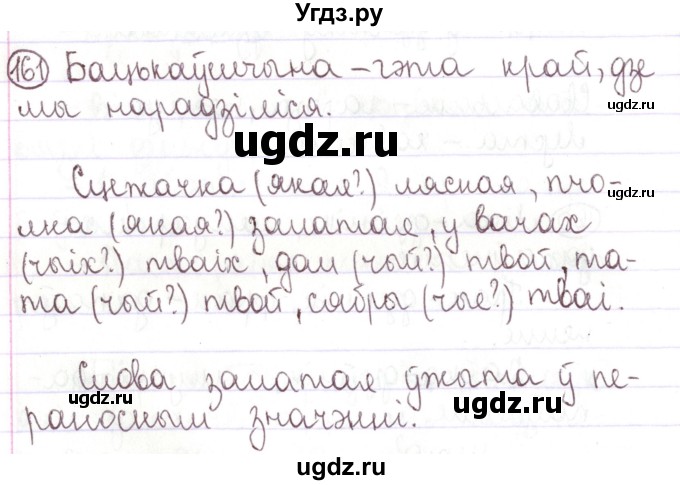 Угдз.ру
161 Бацькаўшчына – гэта край, дзе
мы нарадзіліся.
ugdz.ru
ugdz.ru
Сцежачка (якая?) лясная, пчо-
лка (якая?) залатая, у вачах
(чыіх?) тваіх, дом (чый?) твой, та-
та (чый?) твой, сябры (чые?) тваі.
ugdz.ru
Слова залатая ўжыта ў пе-
ugdz.ru
ugdz.ru
раносным значэнні.
ugdz.ru